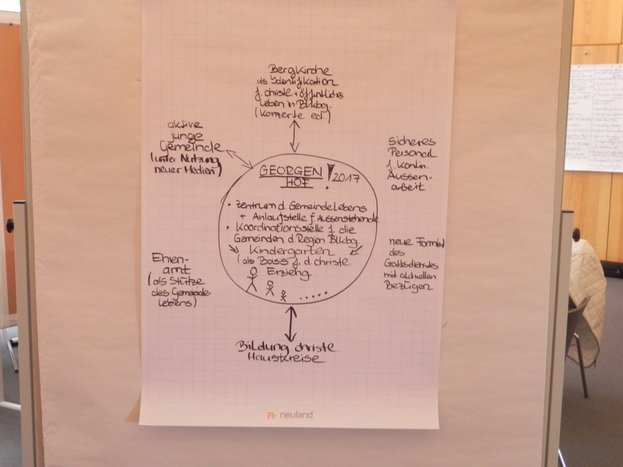 Bergkirche
als Identifikation
f. christl. + öffentliches
Leben in Blkbg.
(Konzerte ect.)
aktive
junge
Gemeinde
(unter Nutzung
neuer Medien)
Sicheres
Personal
f. kontin.
Aussen-
arbeit
GEORGEN
HOF
2017
• Zentrum d. Gemeindelebens
+ Anlaufstelle f. Aussenstehende
• Koordinationsstelle f. die
Gemeinden d. Region Blkbg.
Kindergarten
(als Basis f. d. christl.
Erziehg.
Ehren-
amt
(als Stütze
des Gemeinde-
lebens)
neue Formen
des
Gottesdienstes
mit aktuellen
Bezügen
Bildung christl.
Hauskreise
neuland